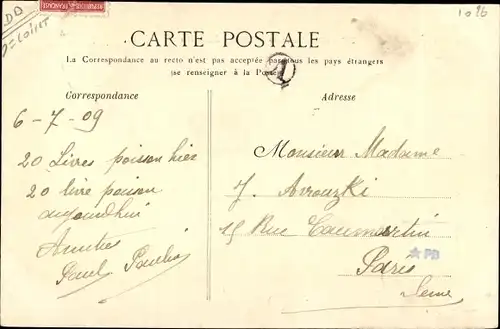 1096
DD
RÉPUBLIQUE FRANÇAISE
CARTE POSTALE
La Correspondance au recto n'est pas acceptée par tous les pays étrangers
(se renseigner à la Poste)
Correspondance
Adresse
6-7-09
20 Livres poisson hier
20 livre poison
aujourd'hui
Amitiés
Paul
Monsieur Madame
J.
15 Rue Caumartin
Paris
Seine
PB